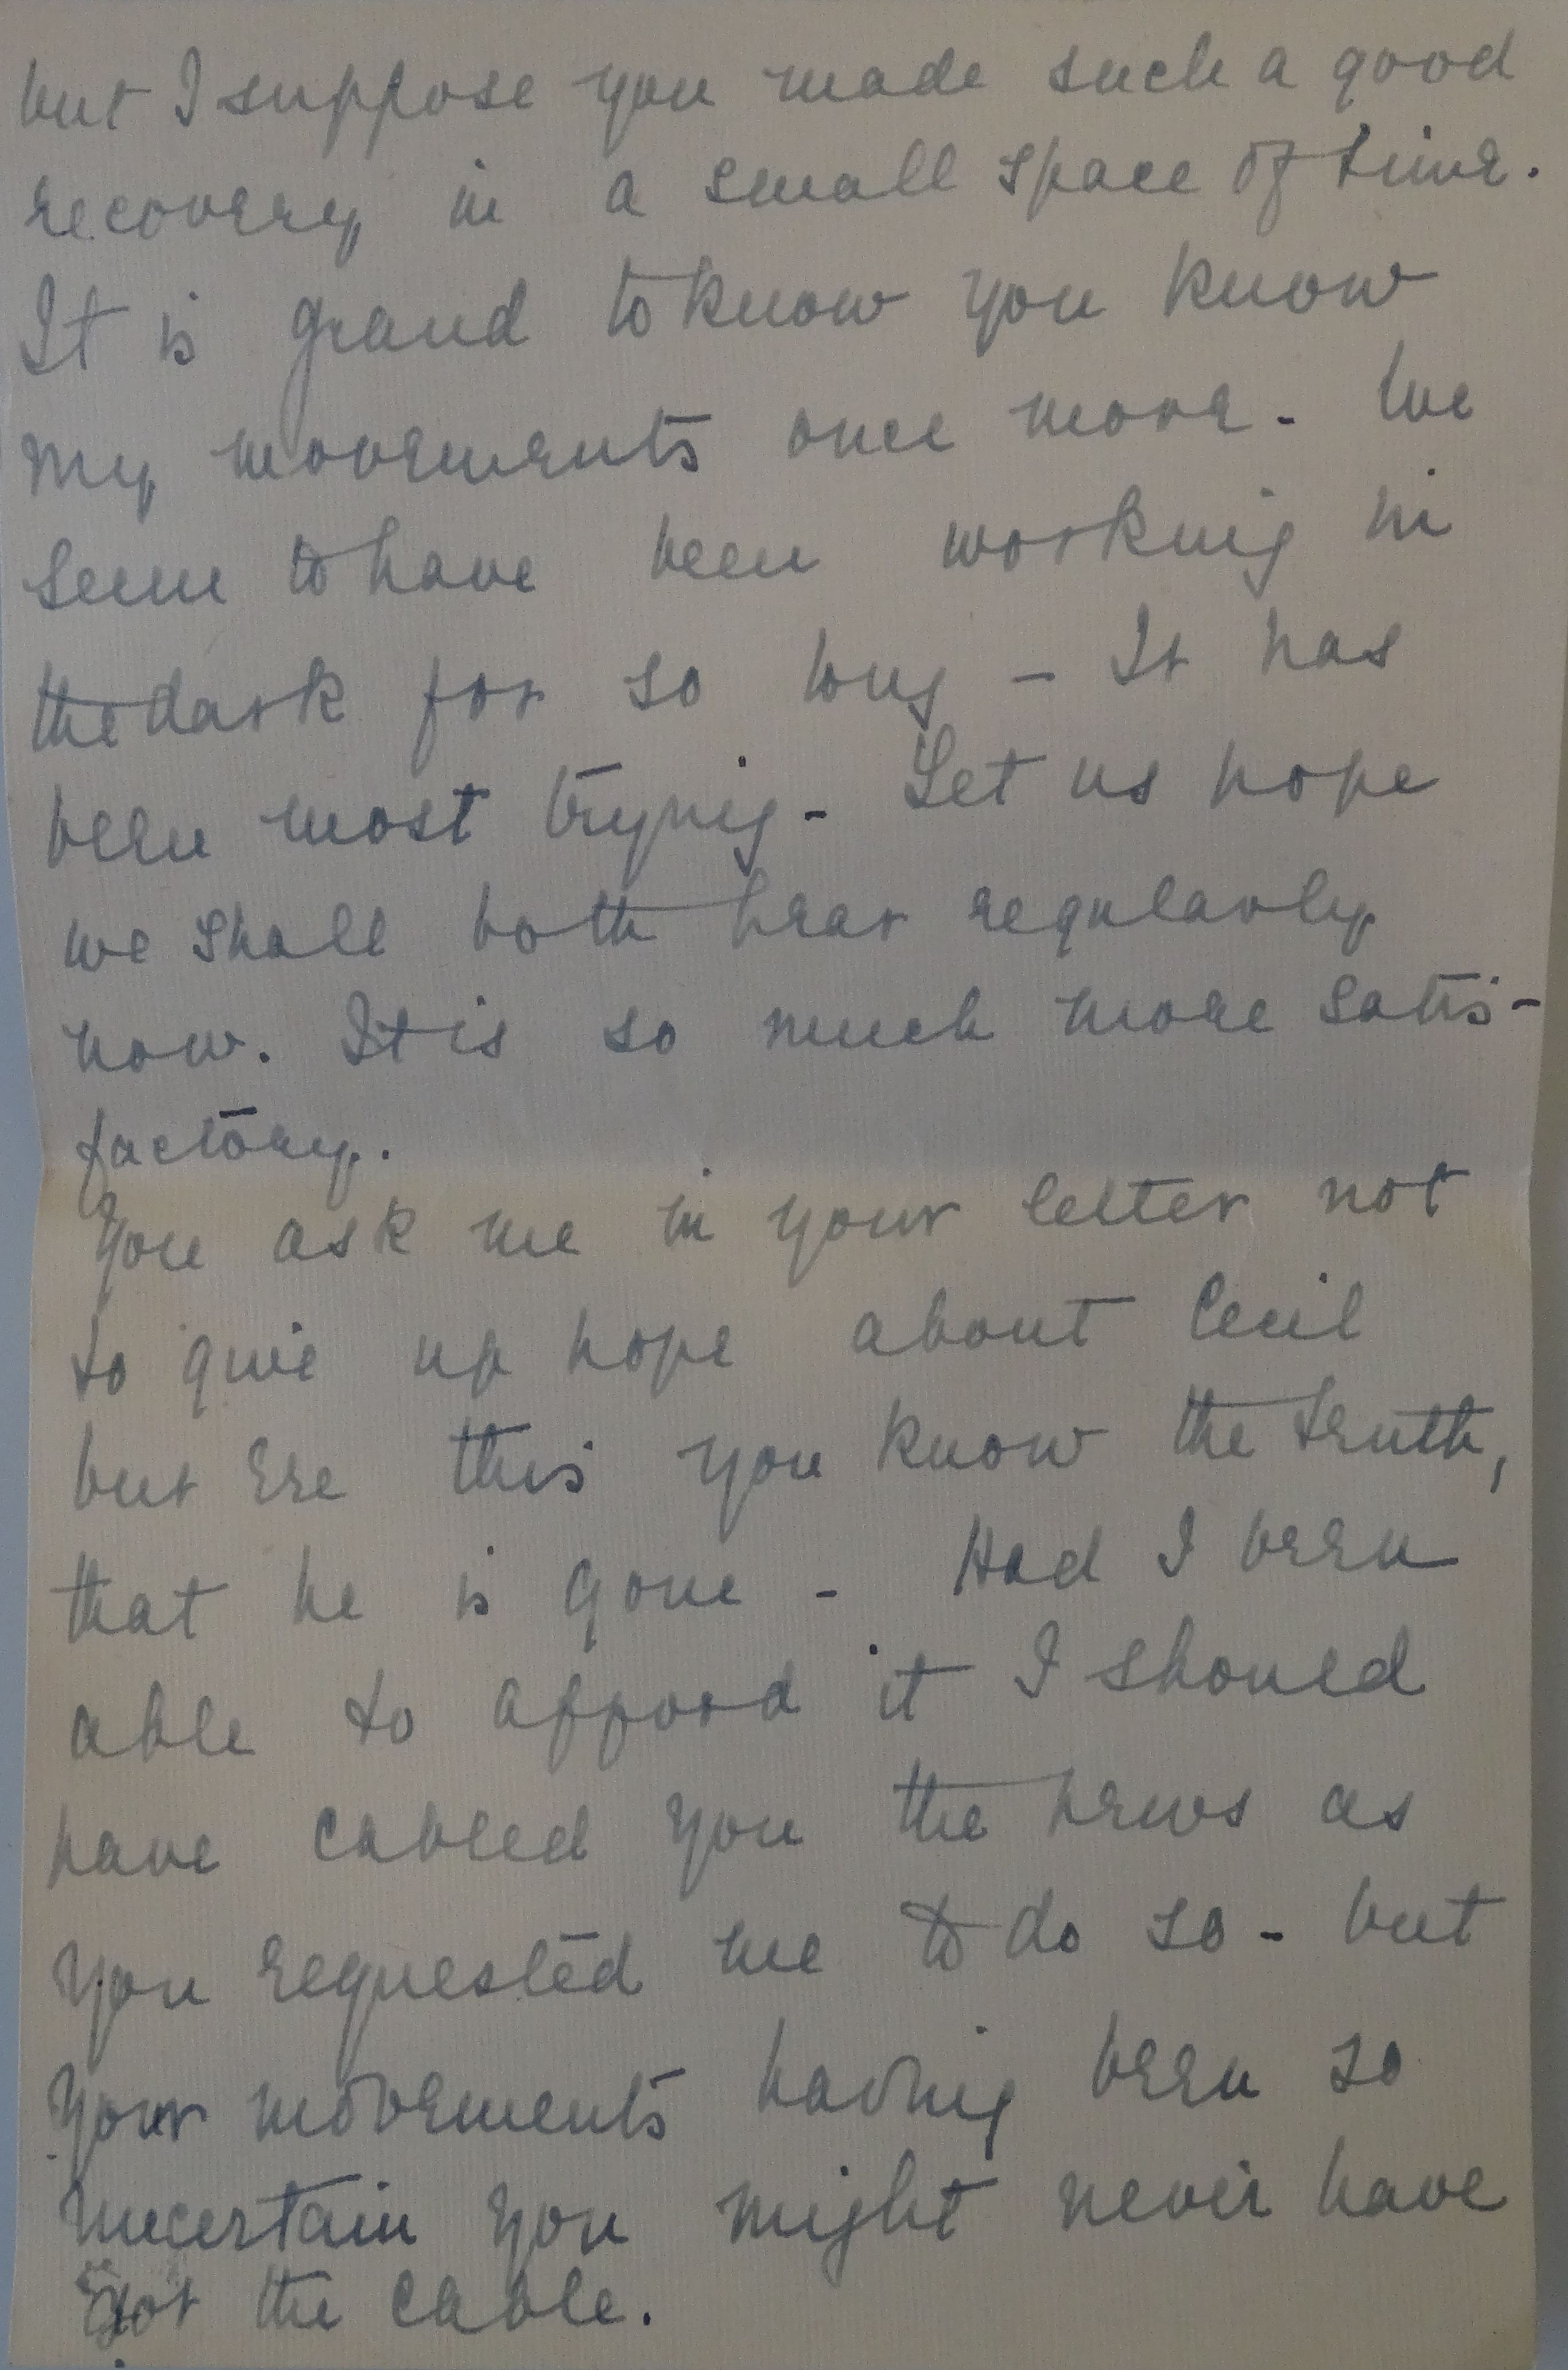 but I suppose you made such a good
recovery in a small space of time.
It is grand to know you know
my movements once more - We
seem to have been working in
the dark for so long - It has
been most trying - Let us hope
we shall both hear regularly
now. It is so much more satis-
factory.
You ask me in your letter not
to give up hope about Cecil
but ere this you know the truth,
that he is gone - Had I been
able to afford it I should
have cabled you the news as
you requested me to do so - but
your movements having been so
uncertain you might never have
got the cable.